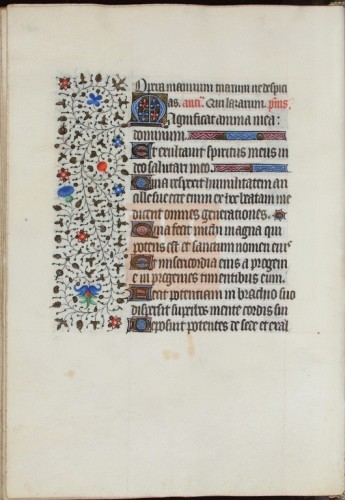 Opera manuum tuarum ne despici
as. an̄. Qui lazarum. p̄us.
Magnificat anima mea:
dominum.
Et exultavit spiritus meus in
deo salutari meo.
Quia respexit humilitatem an
cille sue ecce enim ex hoc beatam me
dicent omnes generationes.
Quia fecit michi magna qui
potens est et sanctum nomen eius
Et misericordia eius a progenie
in progenies timentibus eum.
Fecit potentiam in brachio suo
dispersit superbos mente cordis sui
Deposuit potentes de sede et exal